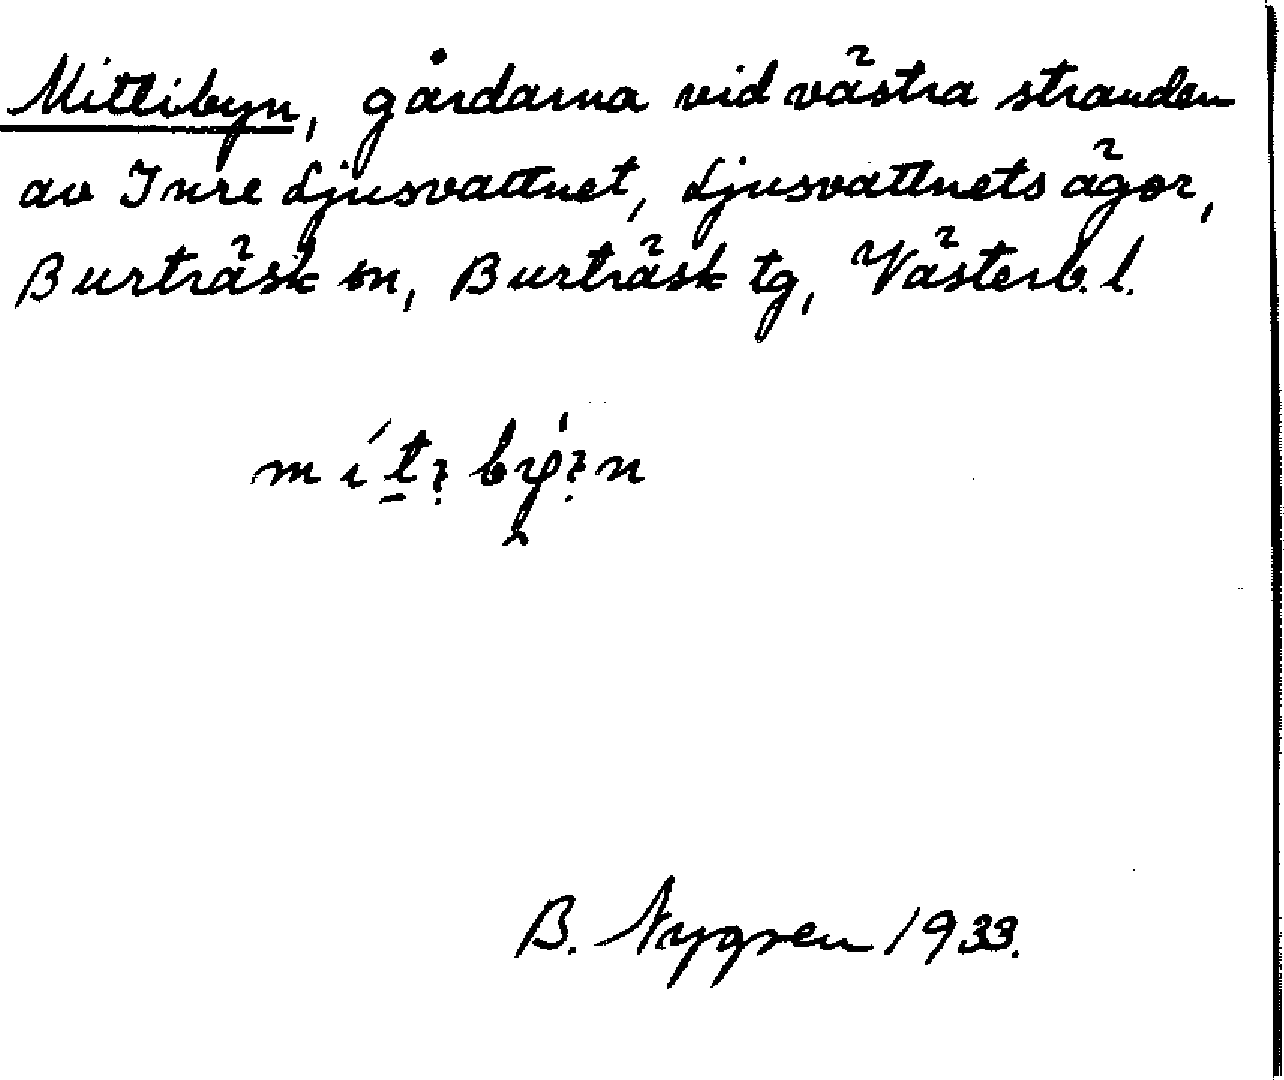 Mittibyn, gårdarna vid västra stranden
av Inre Ljusvattnet, Ljusvattnets ägor,
Burträsk sn, Burträsk tg, Västerb. l.
B. Nygren 1933.